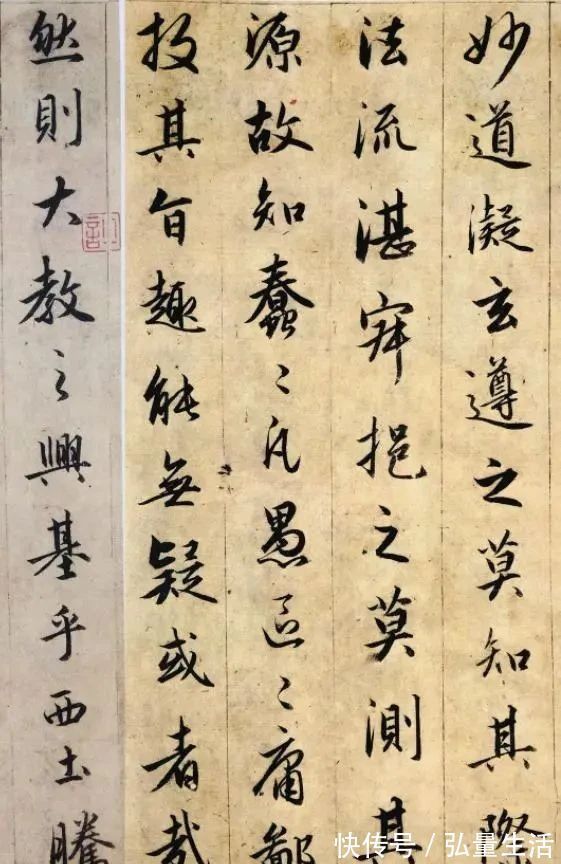 妙道凝玄遵之莫知其際
法流湛寂挹之莫測其
源故知蠢〻凡愚區〻庸鄙
投其旨趣能無疑或者哉
然則大教之興基乎西土騰
快传号 / 弘量生活